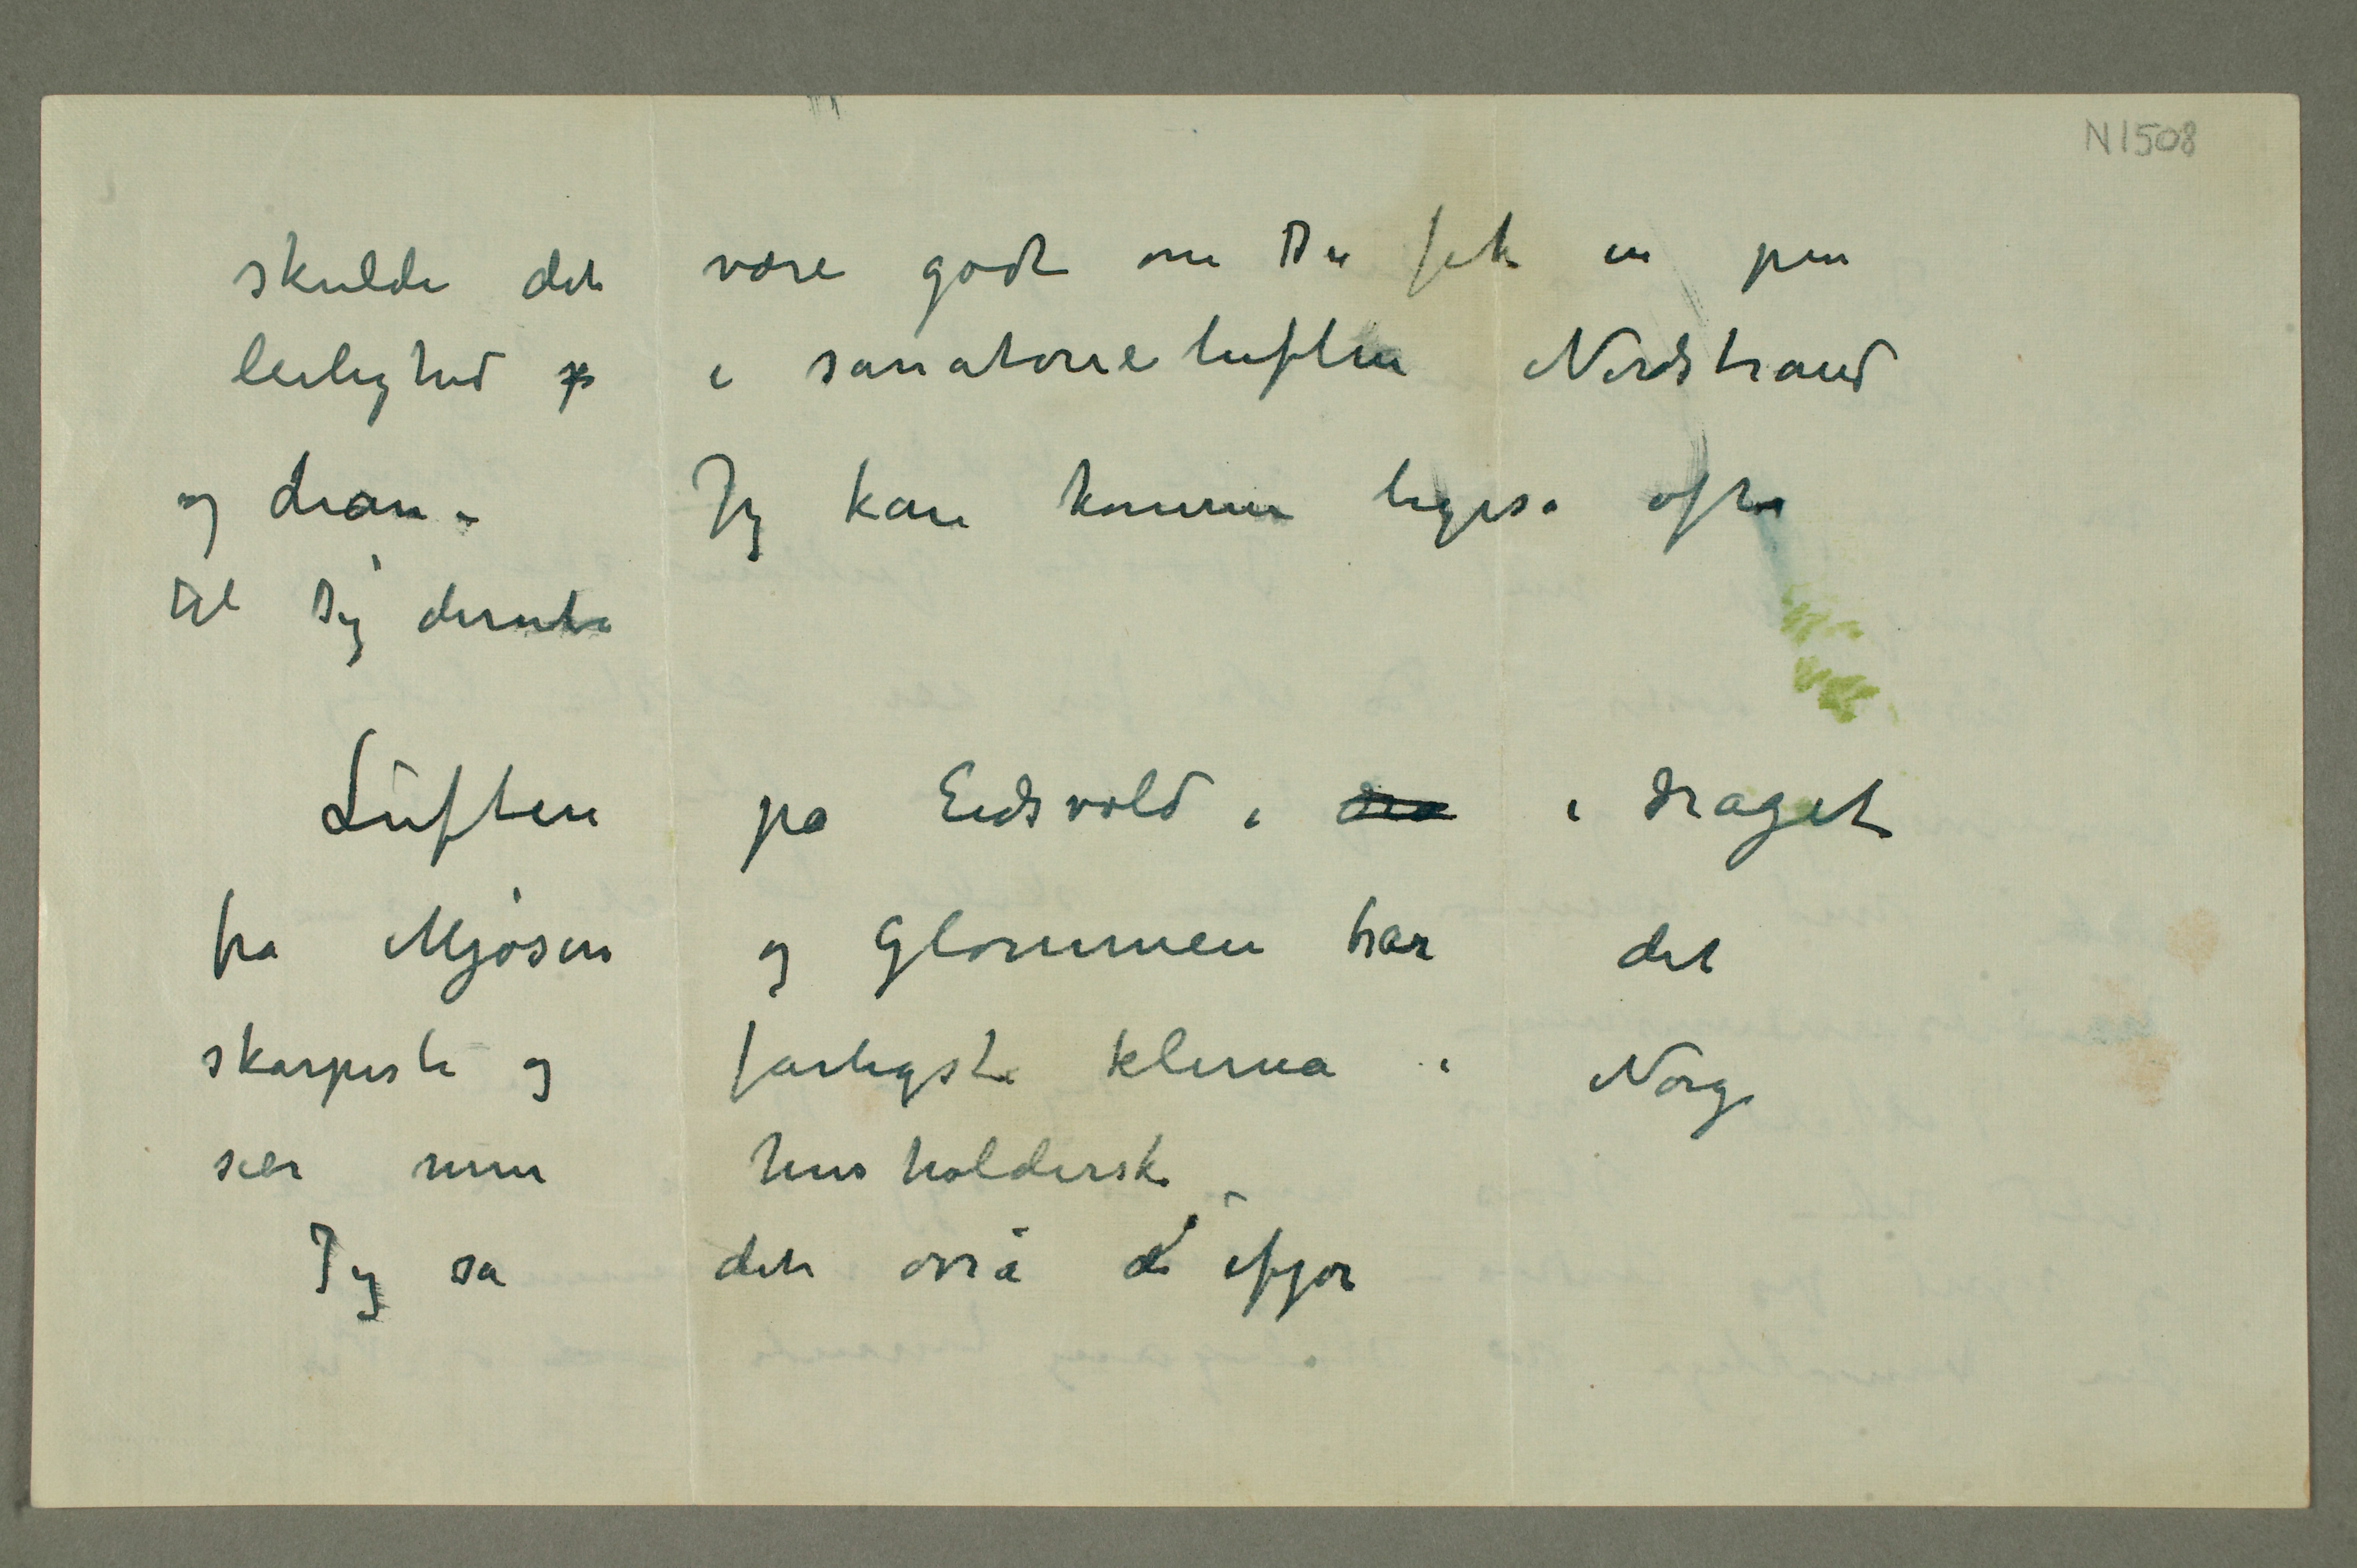 N1508
skulde det være godt om Du fik en pen
leilighed i sanatorieluften Nordstrand
og Lian – Jeg kan komme ligeså ofte
til Dig derude
Luften på Eidsvold i i draget
fra Mjøsen og Glommen har det
skarpeste og farligste klima i Norge
sier min husholderske –
Jeg så det også ifjor